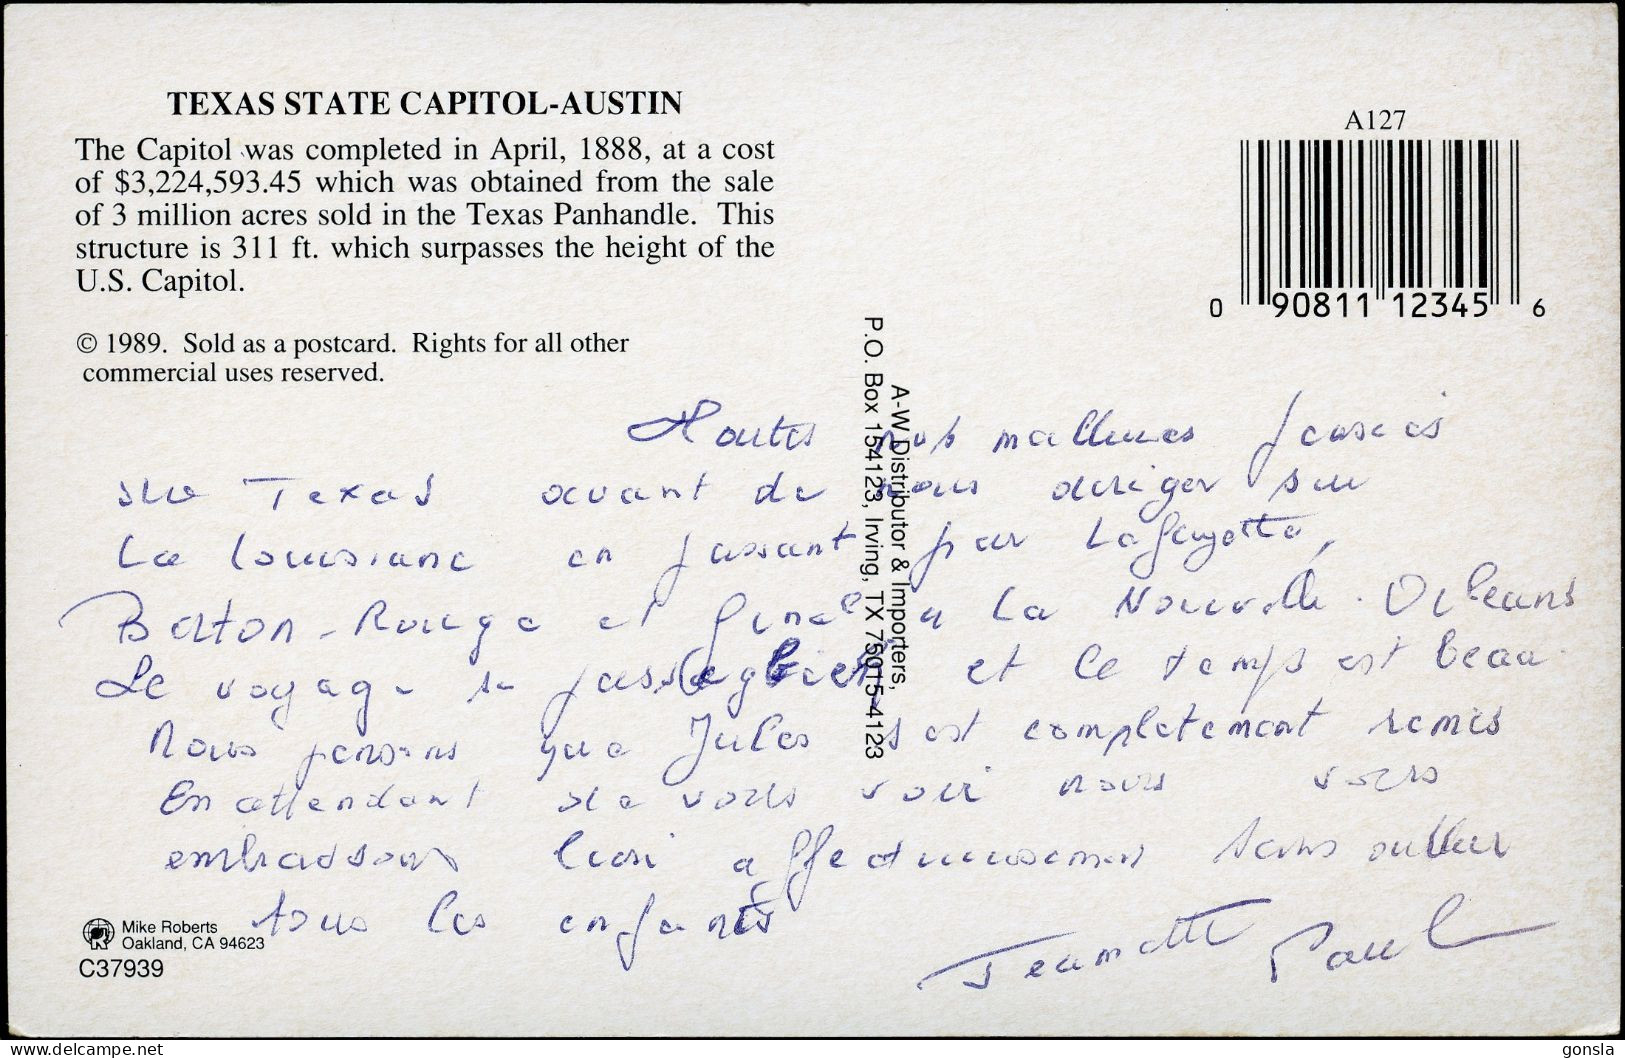 TEXAS STATE CAPITOL-AUSTIN
The Capitol was completed in April, 1888, at a cost
of $3,224,593.45 which was obtained from the sale
of 3 million acres sold in the Texas Panhandle. This
structure is 311 ft. which surpasses the height of the
U.S. Capitol.
© 1989. Sold as a postcard. Rights for all other
commercial uses reserved.
A127
0 90811 12345 6
A-W Distributor & Importers,
P.O. Box 154123, Irving, TX 75015-4123
Toutes nos meilleures pensées
du Texas avant de nous diriger sur
La Louisiane en passant par Lafayette,
Baton-Rouge et final à La Nouvelle-Orléans
Le voyage se passe bien et le temps est beau.
Nous pensons que Jules s'est completement remis
En attendant de vous voir nous vous
embrassons bien affectueusement sans oublier
tous les enfants
Jeannette Paul
Mike Roberts
Oakland, CA 94623
C37939
www.delcampe.net
gonsla